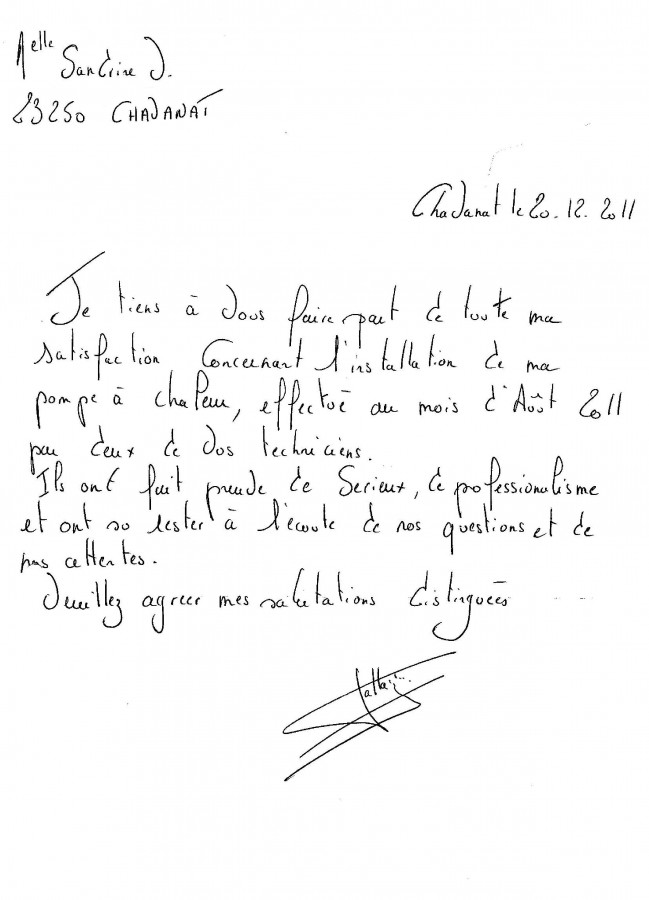 Melle Sandrine D.
23250 CHADANAT
Chadanat le 20.12.2011
Je tiens à vous faire part de toute ma
satisfaction concernant l'installation de ma
pompe à chaleur, effectué au mois d'Août 2011
par deux de vos techniciens.
Ils ont fait preuve de Serieux, de professionalisme
et ont su rester à l'écoute de nos questions et de
nos attentes.
Veuillez agreer mes salutations distinguées